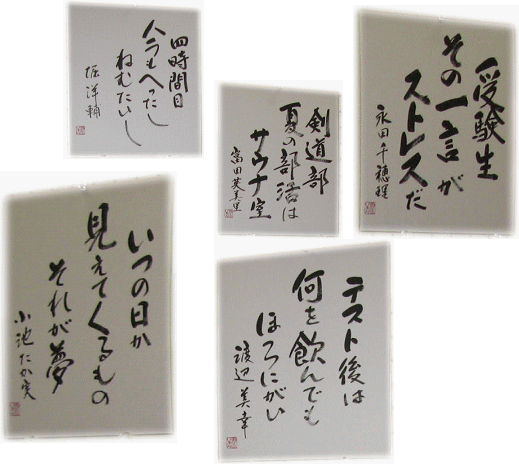 四時間目
ハラもへったし
ねむたいし
堀洋輔
剣道部
夏の部活は
サウナ室
富田英美里
受験生
その一言が
ストレスだ
永田千穂理
いつの日か
見えてくるもの
それが夢
小池たか実
テスト後は
何を飲んでも
ほろにがい
渡辺美幸